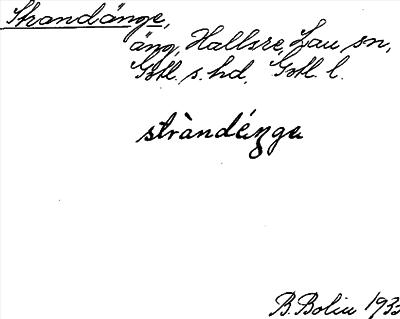 Strandänge,
äng, Hallsre, Lau sn,
Gotl. s. hd, Gotl. l.
stràndéŋge
B. Bolin 1933